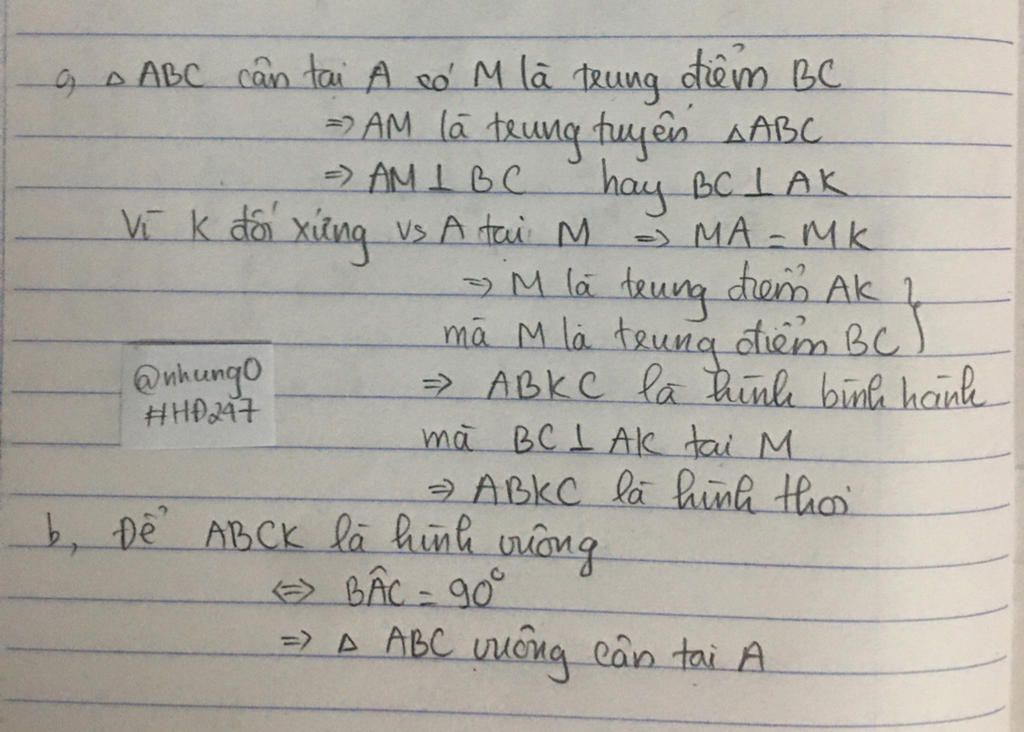 a, △ ABC cân tại A có M là trung điểm BC
⇒ AM là trung tuyến △ABC
⇒ AM ⊥ BC hay BC ⊥ AK
Vì K đối xứng vs A tại M ⇒ MA = MK
⇒ M là trung điểm AK }
mà M là trung điểm BC
⇒ ABKC là hình bình hành
mà BC ⊥ AK tại M
⇒ ABKC là hình thoi
b, Để ABCK là hình vuông
⇔ BÂC = 90°
⇒ △ ABC vuông cân tại A
@nhung0
#HĐ247